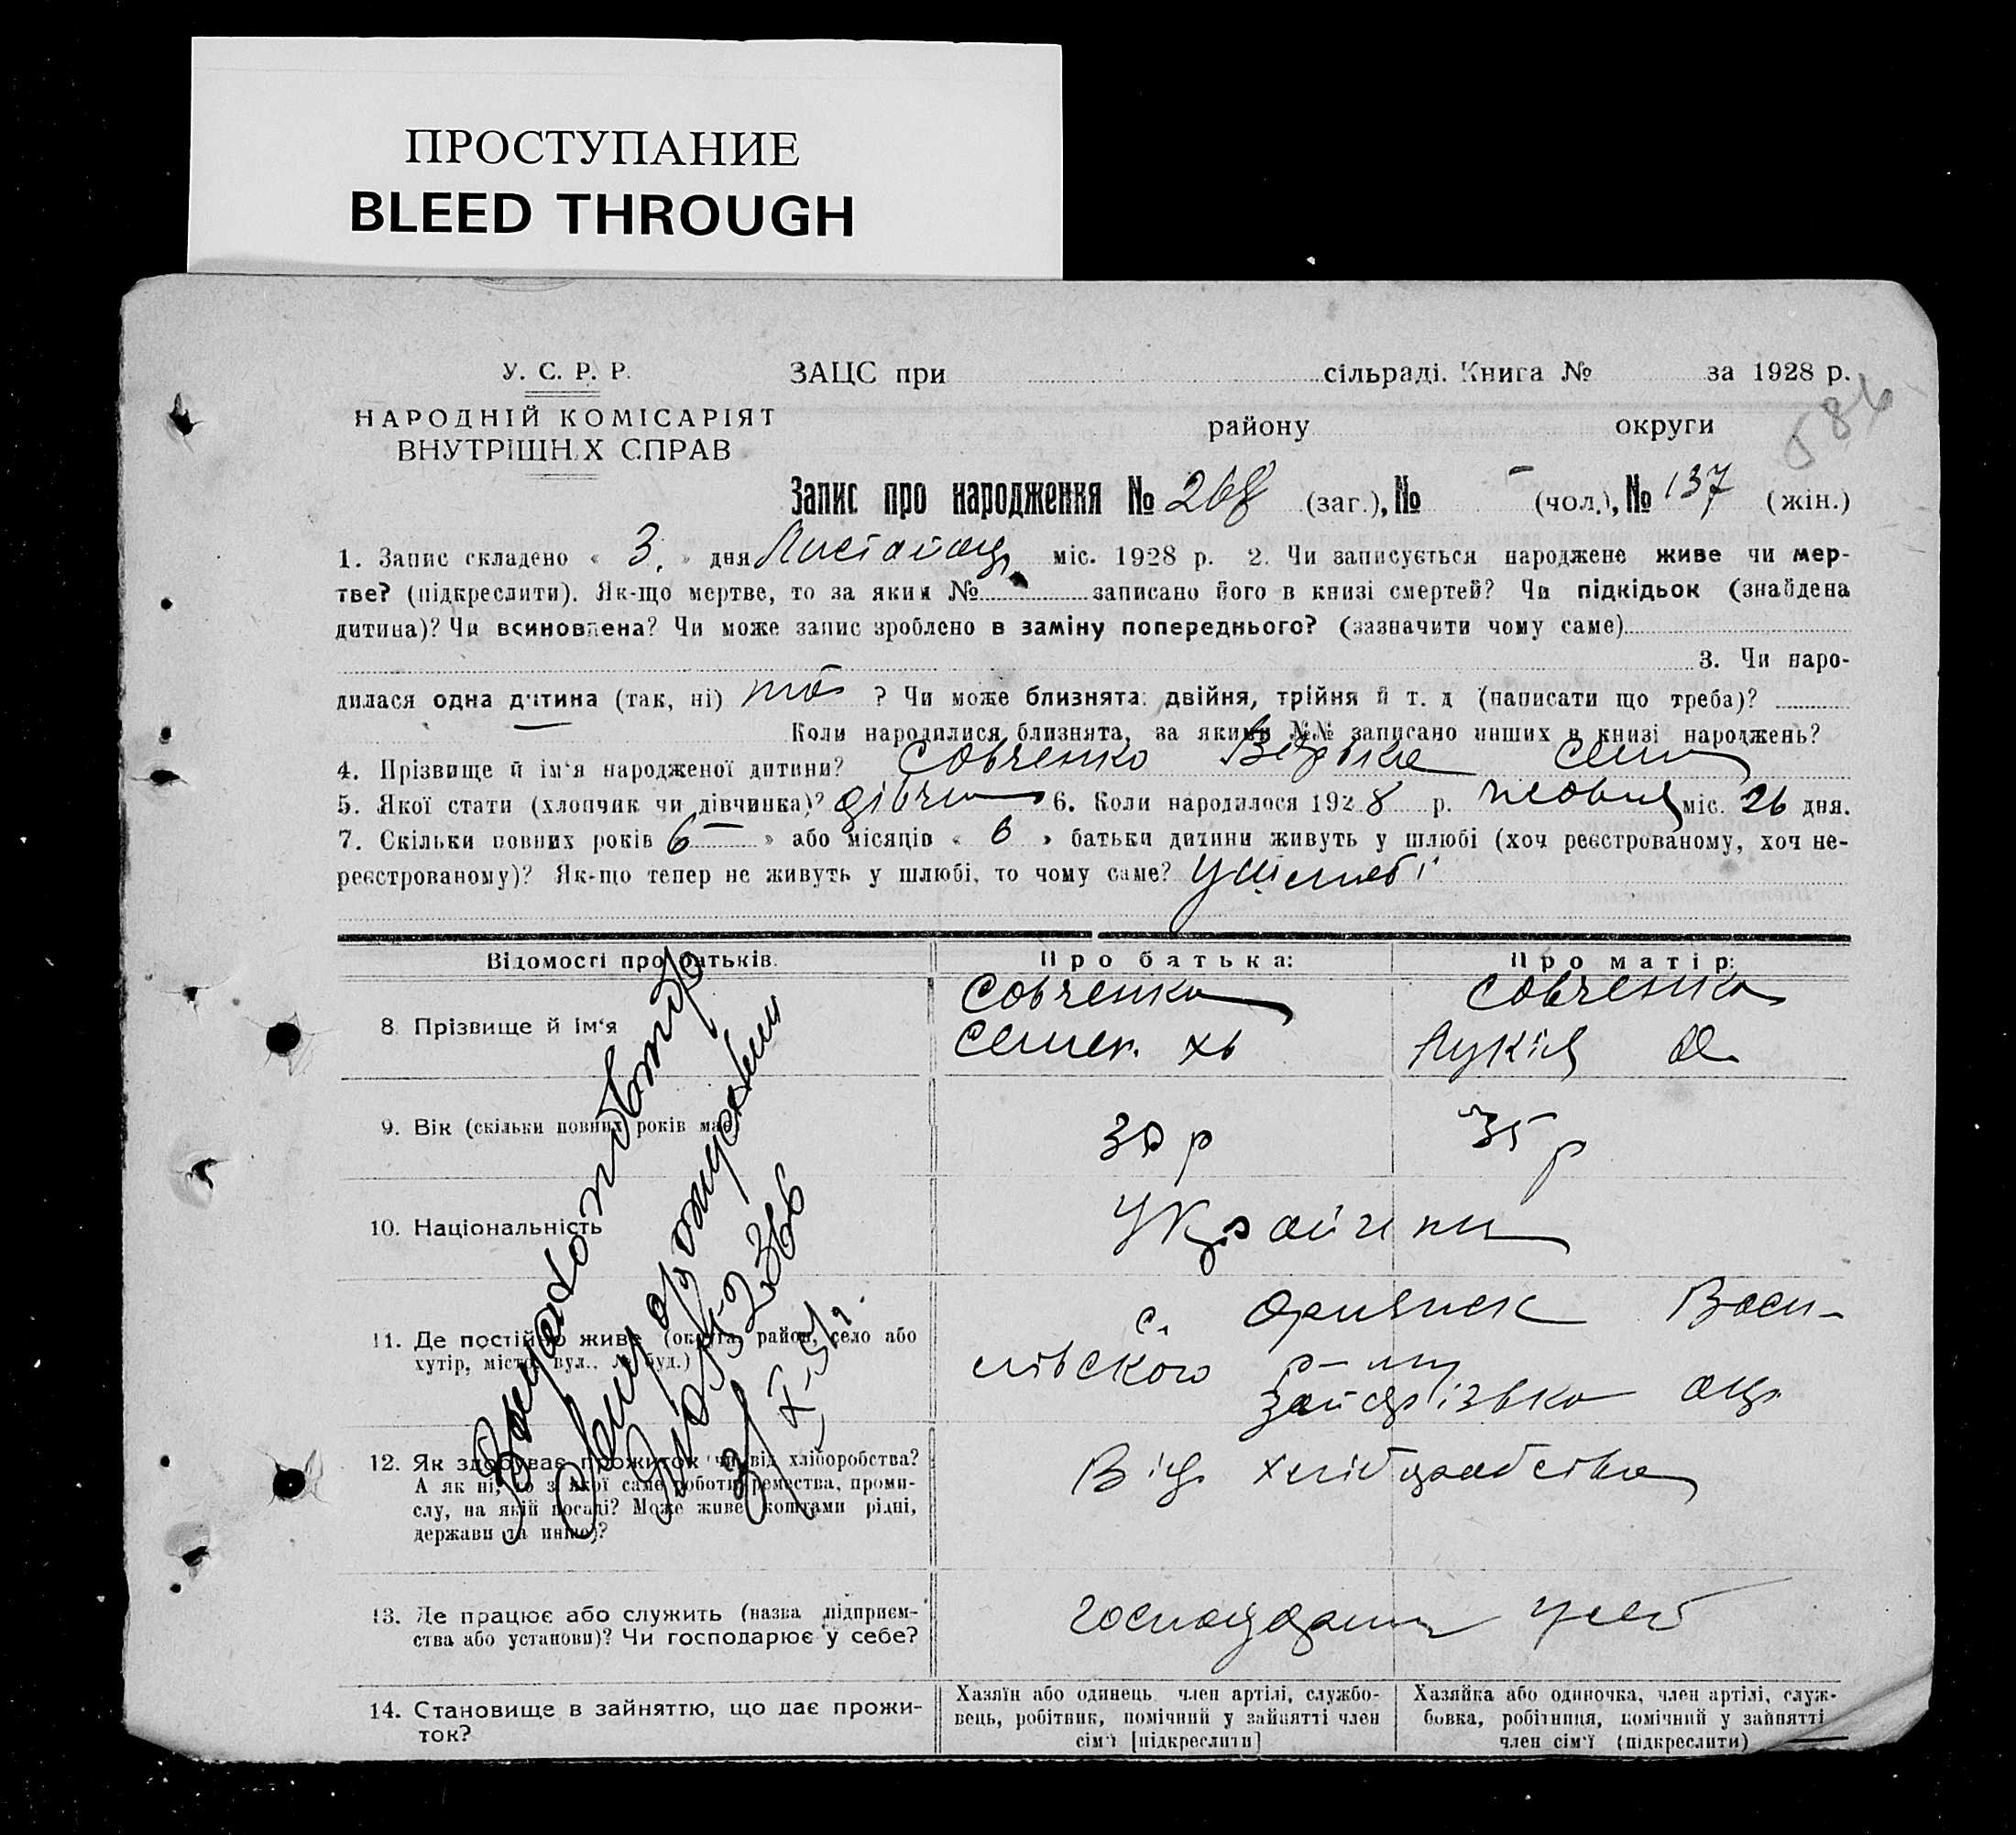 ПРОСТУПАНИЕ
BLEED THROUGH
У. С. Р. Р.
НАРОДНІЙ КОМІСАРІЯТ
ВНУТРІШН.Х СПРАВ
ЗАЦС при сільраді. Книга № за 1928 р.
району округи
584
Запис про народження № 268 (заг.), № – (чол.), № 137 (жін.)
1. Запис складено « 3. » дня Листопад міс. 1928 р. 2. Чи записується народжене живе чи мер-
тве? (підкреслити). Як-що мертве, то за яким № записано його в книзі смертей? Чи підкідьок (знайдена
дитина)? Чи всиновлена? Чи може запис зроблено в заміну попереднього? (зазначити чому саме)
3. Чи наро-
дилася одна дитина (так, ні) так ? Чи може близнята: двійня, трійня й т. д (написати що треба)?
Коли народилися близнята, за якими №№ записано инших в книзі народжень?
4. Прізвище й ім‘я народженої дитини? Совченко
5. Якої стати (хлопчик чи дівчинка)? дівчин 6. Коли народилося 1928 р. жовтня міс. 26 дня.
7. Скільки повних років 6 – » або місяців « 6 » батьки дитини живуть у шлюбі (хоч реєстрованому, хоч не-
реєстрованому)? Як-що тепер не живуть у шлюбі, то чому саме? У шлюбі
Відомості про батьків. Про батька: Про матір:
8. Прізвище й ім‘я
Совченко Совченко
Семен Лукія
9. Вік (скільки повних років має)
30 р 35 р
10. Національність
Українци
11. Де постійно живе (округа, район, село або
хутір, місто, вул., № буд.)
с. Орлянск Васи-
лівского р-ну
Запоріжко окр
12. Як здобуває прожиток чи від хліборобства?
А як ні, то з якої саме роботи, ремества, проми-
слу, на якій посаді? Може живе коштами рідні,
держави та инше)?
Від хліборобства
13. Де працює або служить (назва підприєм-
ства або установи)? Чи господарює у себе?
господарин у себ
14. Становище в зайняттю, що дає прожи-
ток?
Хазяїн або одинець член артілі, службо-
вець, робітник, помічний у зайнятті член
сім‘ї [підкреслити]
Хазяйка або одиночка, член артілі, служ-
бовка, робітниця, помічний у зайнятті
член сім‘ї (підкреслити)